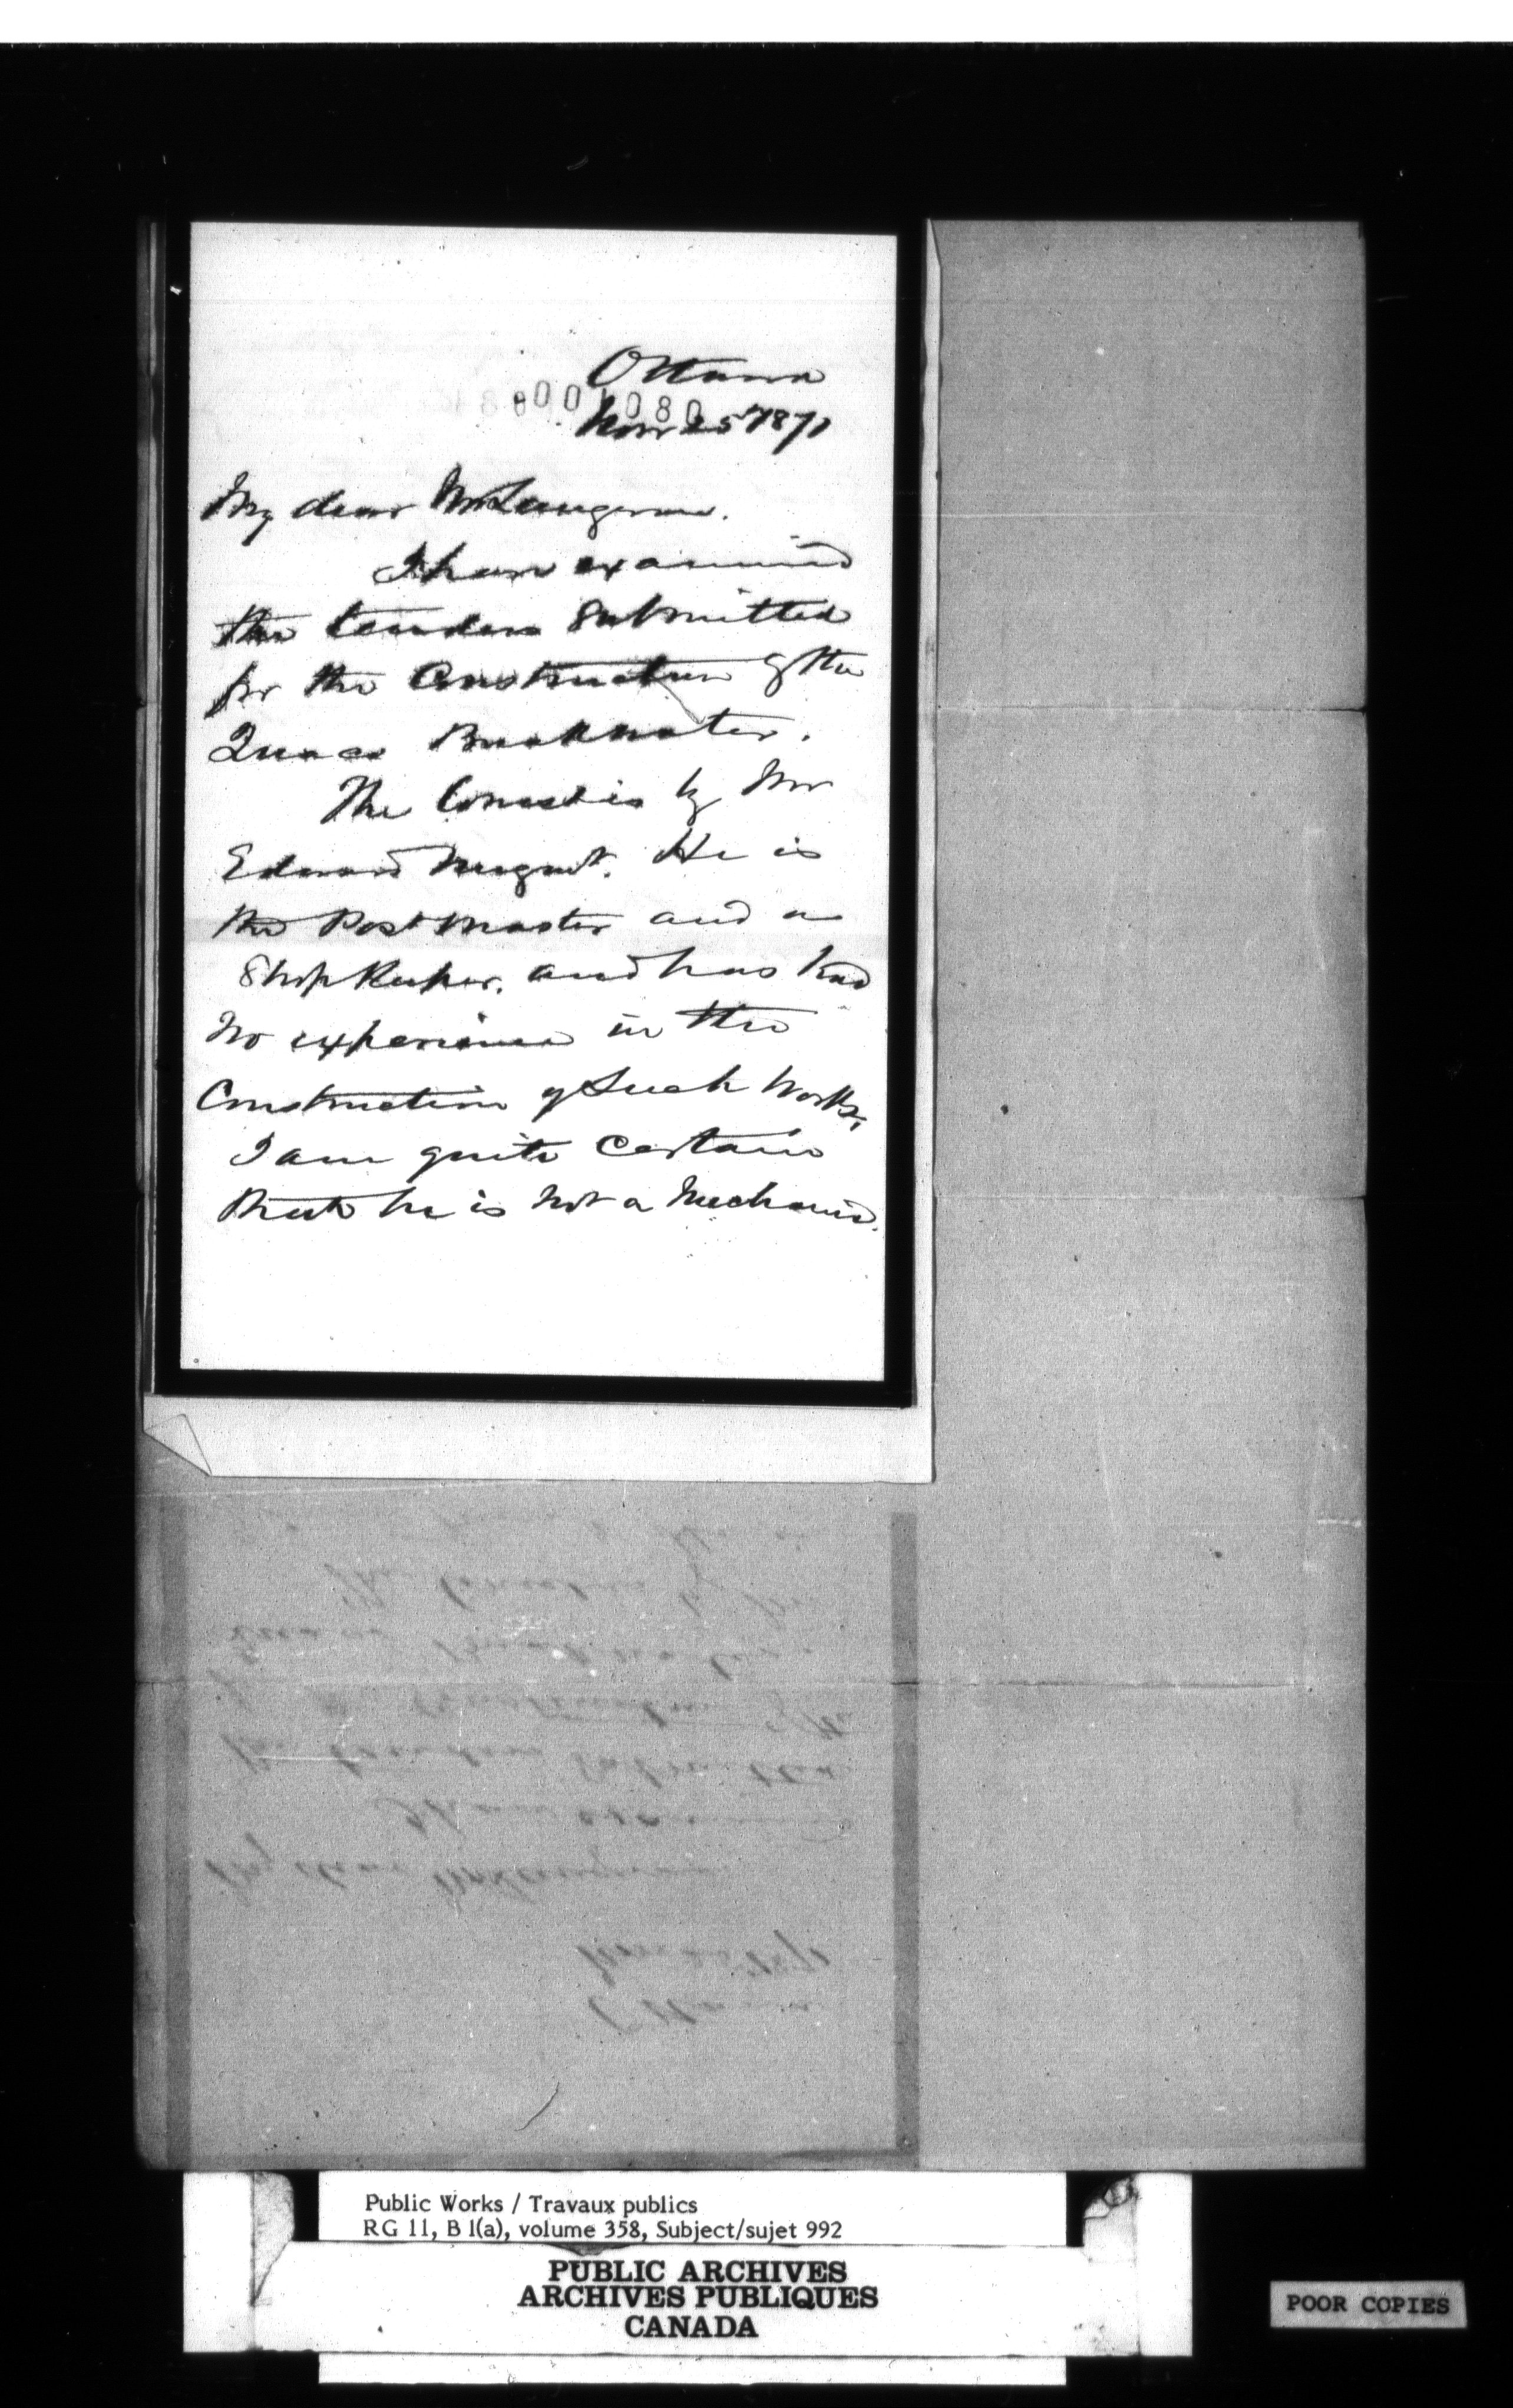 Ottawa
Nov 25 1871
My dear Mr Langevin.
I have examined
the tenders Submitted
for the Construction of the
Quaco Breakwater.
The lowest is by Mr
Edward Nugent. He is
the Post Master and a
Shop Keeper, and has had
no experience in the
Construction of Such Works,
I am quite Certain
that he is not a Mechanic.
Public Works / Travaux publics
RG 11, B 1(a), volume 358, Subject/sujet 992
PUBLIC ARCHIVES
ARCHIVES PUBLIQUES
CANADA
POOR COPIES